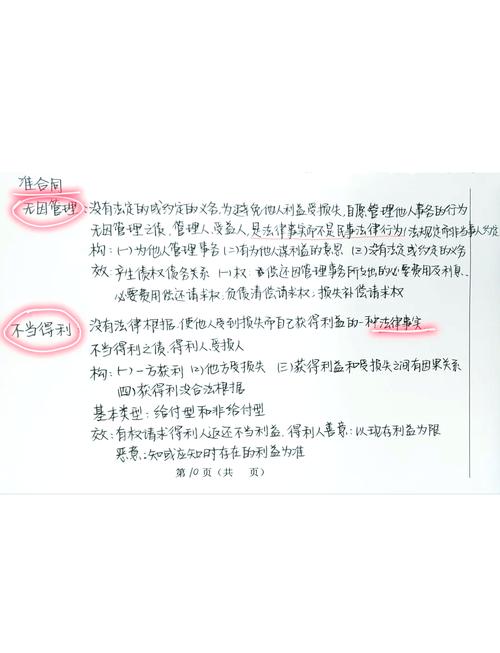 准合同
无因管理:没有法定的或约定的义务,为避免他人利益受损失,自愿管理他人事务的行为
无因管理之债,管理人、受益人,是法律事实而不是民事法律行为/法规定而非当事人约定
构:(一)为他人管理事务 (二)有为他人谋利益的意思 (三)没有法定或约定的义务
效:产生债权债务关系 (一)权:偿还因管理事务所支出的必要费用及利息..
必要费用偿还请求权,负债清偿请求权;损失补偿请求权
不当得利 没有法律根据,使他人受到损失而自己获得利益的一种法律事实
不当得利之债,得利人、受损人
构:(一)一方获利 (二)他方受损失 (三)获得利益和受损失之间有因果关系
(四)获得利没合法根据
基本类型:给付型和非给付型
效:有权请求得利人返还不当利益,得利人善意:以现存利益为限
恶意:知或应知时存在的利益为准
第10页(共 页)